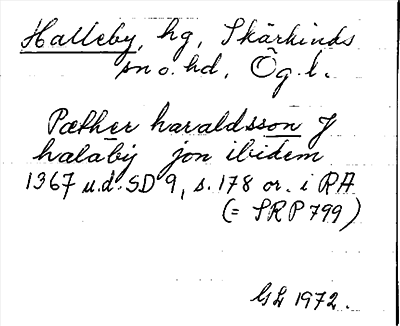 Halleby, hg, Skärkinds
sn o. hd, Ög. l.
Pæther haraldsson J
halaby jon ibidem
1367 u.d. SD 9, s. 178 or. i RA
(= SRP 799)
GL 1972.